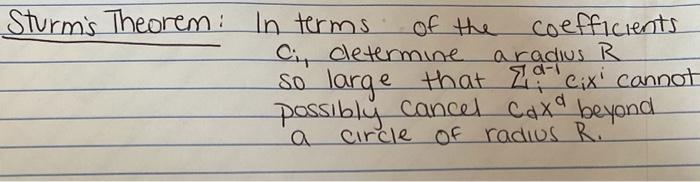 Sturm's Theorem: In terms of the coefficients
Ci, determine a radius R
so large that Σᵢᵈ⁻¹ cixⁱ cannot
possibly cancel Cdxᵈ beyond
a circle of radius R.